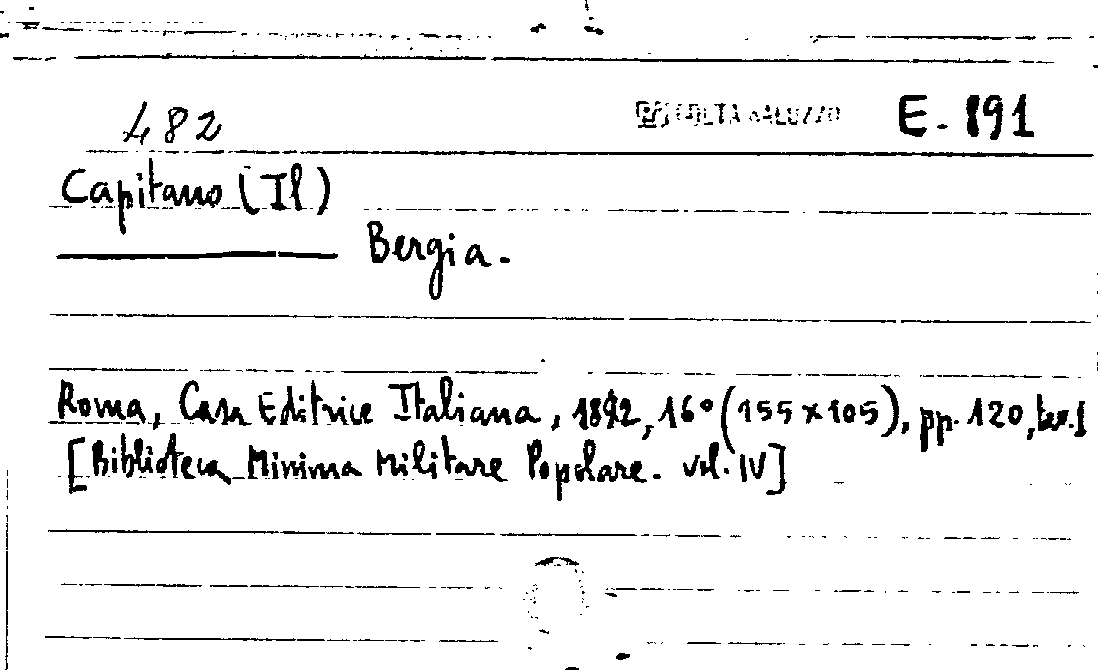 482 RACCOLTA SALUZZO E. 191
Capitano (Il)
Bergia.
Roma, Casa Editrice Italiana, 1892, 16° (155 x 105), pp. 120,
[Biblioteca Minima Militare Popolare. Vol. IV]